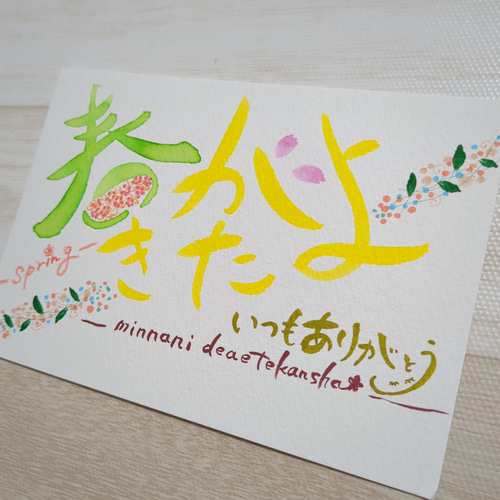 春がきたよ
-spring-
いつもありがとう
minnani deaetekansha